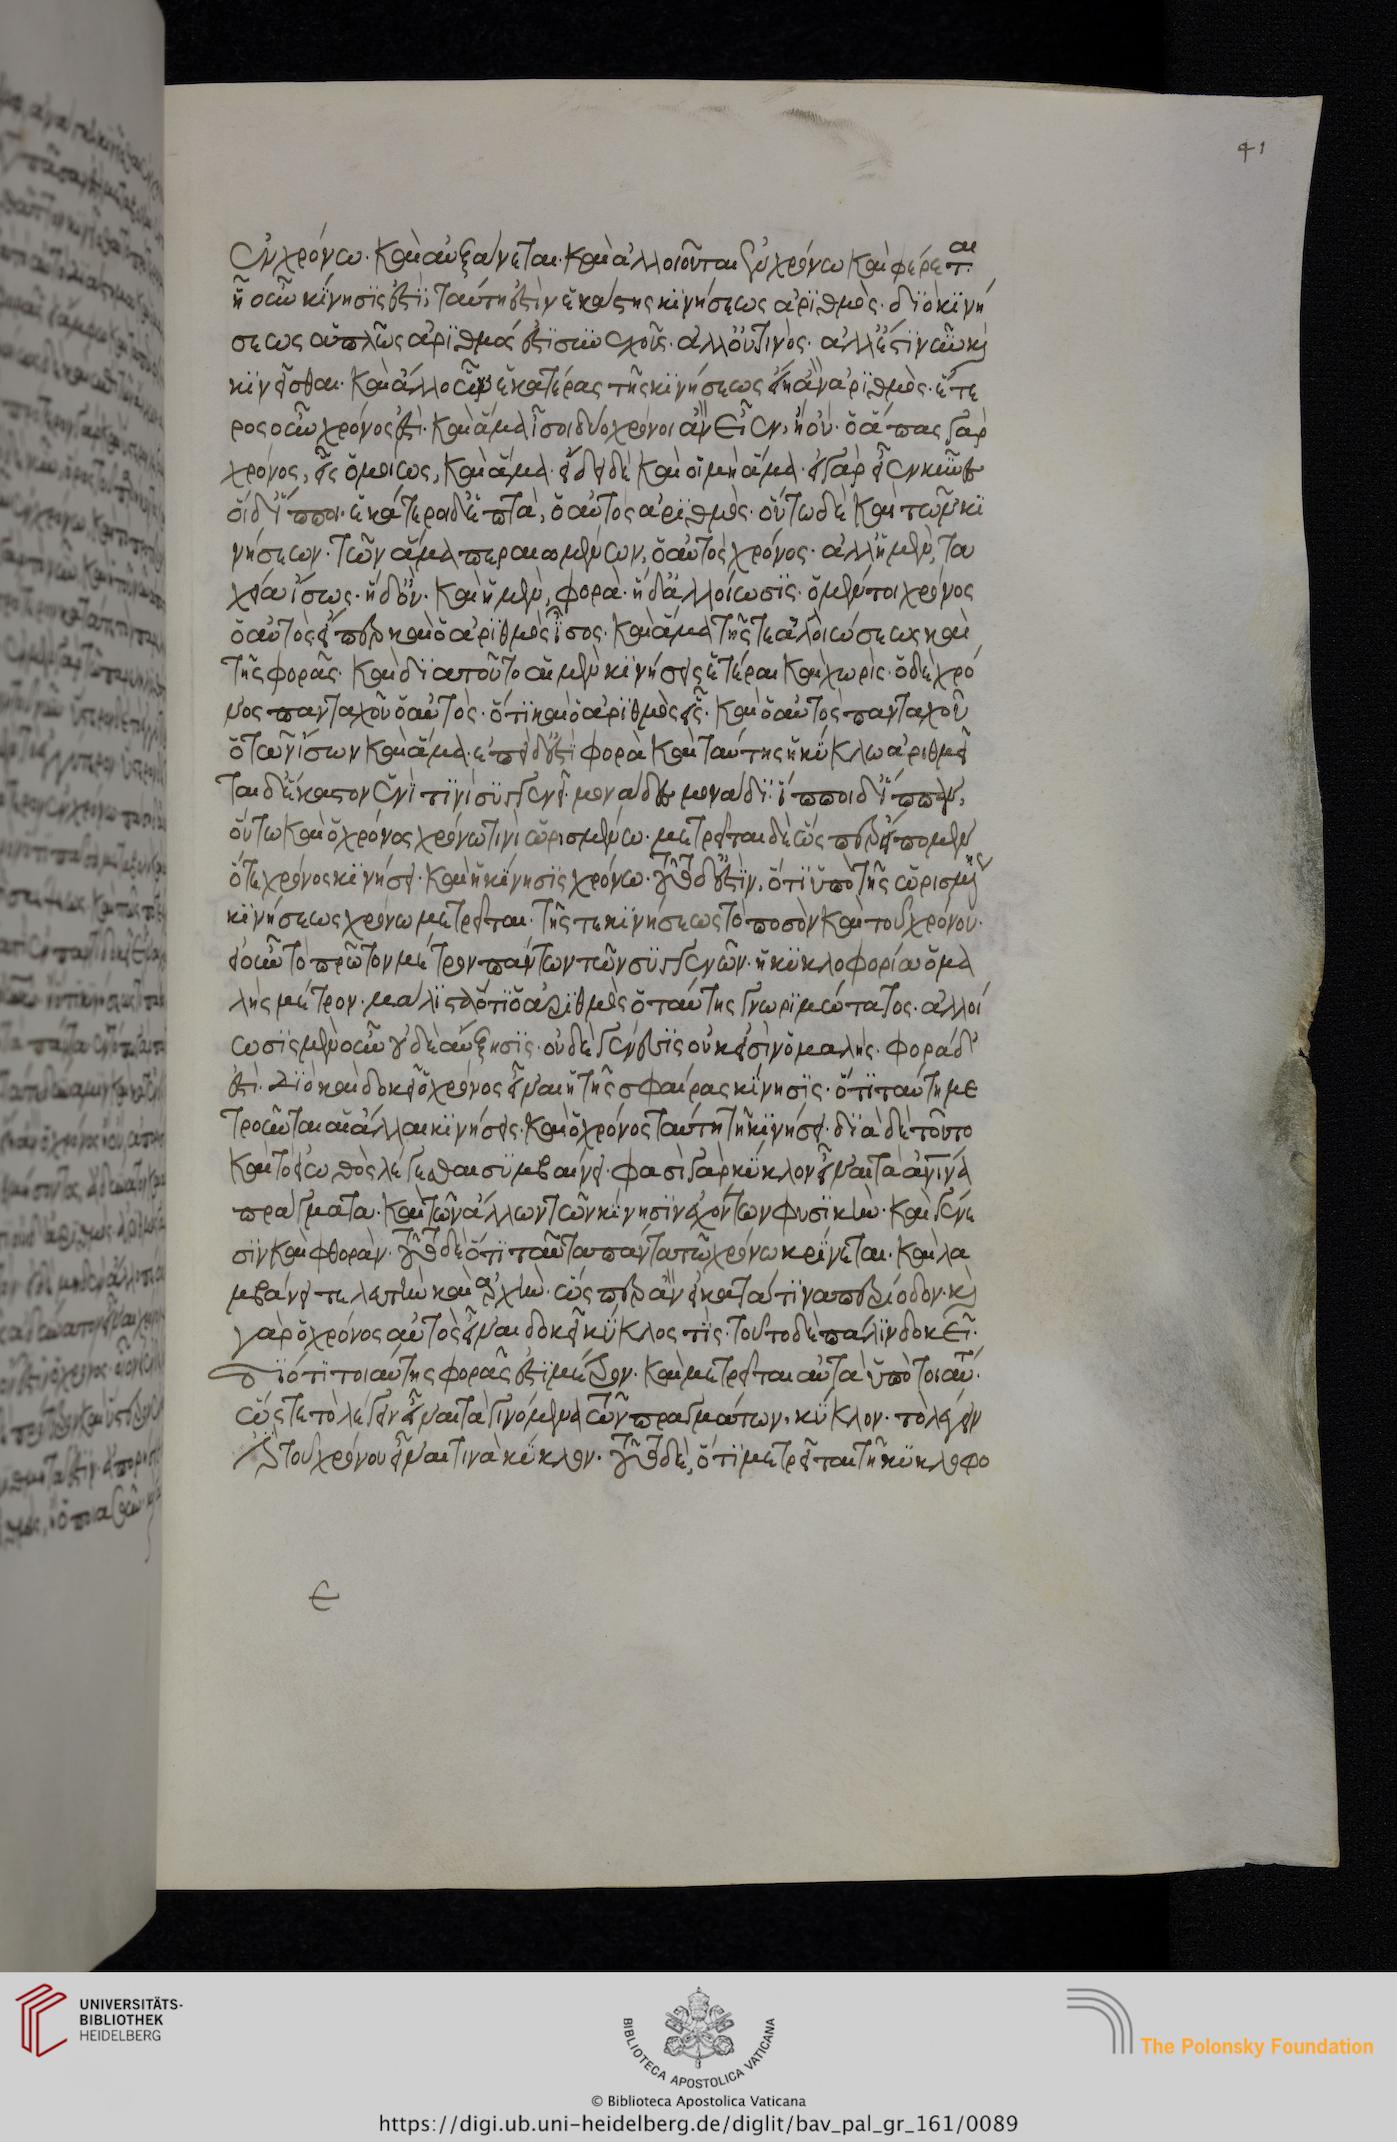 ἐν χρόνω· καὶ αὐξάνεται· καὶ ἀλλοιοῦται ἐν χρόνω καὶ φέρεται·
ἧ οὖν κίνησίς ἐστι, ταύτη ἐστὶν ἑκάστης κινήσεως ἀριθμὸς· διὸ κινή
σεως ἁπλῶς ἀριθμός ἐστι συνεχοῦς· ἀλλ' οὔ τινὸς· ἀλλ' ἔστι νῦν καὶ
κινεῖσθαι· καὶ ἄλλο ὧν ἑκατέρας τῆς κινήσεως εἴη ἂν ἀριθμὸς· ἕτε
ρος οὖν χρόνος ἐστὶ· καὶ ἅμα ἴσοι δύο χρόνοι ἂν εἶεν, ἢ οὐ· ὁ ἅπας γὰρ
χρόνος, εἷς ὁμοίως, καὶ ἅμα· εἴδει δὲ καὶ οἱ μὴ ἅμα· εἰ γὰρ εἶεν κύνες
οἱ δ' ἵπποι· ἑκάτερα δ' ἑπτὰ, ὁ αὐτὸς ἀριθμὸς· οὕτω δὲ καὶ τῶν κι
νήσεων· τῶν ἅμα περαινομένων, ὁ αὐτὸς χρόνος· ἀλλ' ἡ μὲν, τα
χεῖα ἴσως· ἡ δ' οὒ· καὶ ἡ μὲν, φορὰ· ἡ δ' ἀλλοίωσις· ὁ μέντοι χρόνος
ὁ αὐτὸς εἴπερ καὶ ὁ ἀριθμὸς ἴσος· καὶ ἅμα τῆς τε ἀλοιώσεως καὶ
τῆς φορᾶς· καὶ διατοῦτο αἱ μὲν κινήσεις ἕτεραι καὶ χωρὶς· ὁ δὲ χρό
νος πανταχοῦ ὁ αὐτὸς· ὅτι καὶ ὁ ἀριθμὸς εἷς· καὶ ὁ αὐτὸς πανταχοῦ
ὁ τῶν ἴσων καὶ ἅμα· ἐπεὶ δ' ἐστὶ φορὰ καὶ ταύτης ἡ κύκλω ἀριθμεῖ
ται δ' ἕκαστον ἑνί τινὶ συγγενεῖ· μονάδες μονάδι· ἵπποι δ' ἵππω,
οὕτω καὶ ὁ χρόνος χρόνω τινὶ ὡρισμένω· μετρεῖται δὲ ὥσπερ εἴπομεν
ὅ τε χρόνος κινήσει· καὶ ἡ κίνησις χρόνω· τοῦτο δ' ἐστὶν, ὅτι ὑπὸ τῆς ὡρισμένης
κινήσεως χρόνω μετρεῖται· τῆς τε κινήσεως τὸ ποσὸν καὶ τοῦ χρόνου·
εἰ οὖν τὸ πρῶτον μέτρον πάντων τῶν συγγενῶν· ἡ κυκλοφορία ὁμα
λὴς μέτρον· μάλιστα ὅτι ὁ ἀριθμὸς ὁ ταύτης γνωριμώτατος· ἀλλοί
ωσις μὲν οὖν οὐδὲ αὔξησις· οὐδὲ γένεσις οὐκ εἰσὶν ὁμαλὴς· φορὰ δ'
ἐστὶ· διὸ καὶ δοκεῖ ὁ χρόνος εἶναι ἡ τῆς σφαίρας κίνησις· ὅτι ταύτη με
τροῦνται αἱ ἄλλαι κινήσεις· καὶ ὁ χρόνος ταύτη τῆ κινήσει· διὰ δὲ τοῦτο
καὶ τὸ εἰωθὸς λέγεσθαι συμβαίνει· φασὶ γὰρ κύκλον εἶναι τὰ ἀν̅ινα
πράγματα· καὶ τῶν ἄλλων τῶν κίνησιν ἐχόντων φυσικὴν· καὶ γένε
σιν καὶ φθορὰν· τοῦτο δὲ ὅτι ταῦτα πάντα τῶ χρόνω κρίνεται· καὶ λα
μβάνει τελευτὴν καὶ ἀρχὴν· ὥσπερ ἂν εἰ κατά τινα περίοδον· καὶ
γὰρ ὁ χρόνος αὐτὸς εἶναι δοκεῖ κύκλος τὶς· τοῦτο δὲ πάλιν δοκεῖ·
διότι τοιαύτης φορᾶς ἐστὶ μέτρον· καὶ μετρεῖται αὐτὰ ὑπὸ τοιαύτ·
ὥστε τὸ λέγειν εἶναι τὰ γινόμενα τῶν πραγμάτων, κύκλον· τὸ λέγειν
ἐστὶ τοῦ χρόνου εἶναι τινὰ κύκλον· τοῦτο δὲ, ὅτι μετρεῖται τῆ κυκλοφο
41
UNIVERSITÄTS-
BIBLIOTHEK
HEIDELBERG
BIBLIOTECA APOSTOLICA VATICANA
© Biblioteca Apostolica Vaticana
The Polonsky Foundation
https://digi.ub.uni-heidelberg.de/diglit/bav_pal_gr_161/0089